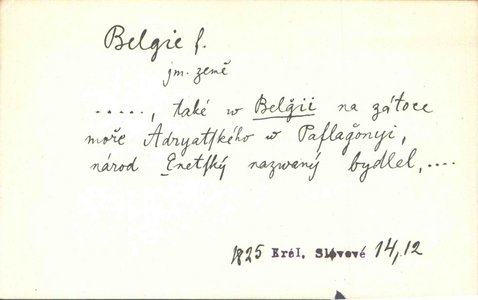 Belgie f.
jm. země
....., také w Belǧii na zátoce
moře Adryatſkého w Paflaǧonyi,
národ Enetſký nazwaný bydlel,....
1825 Krél. Slovové 14,12